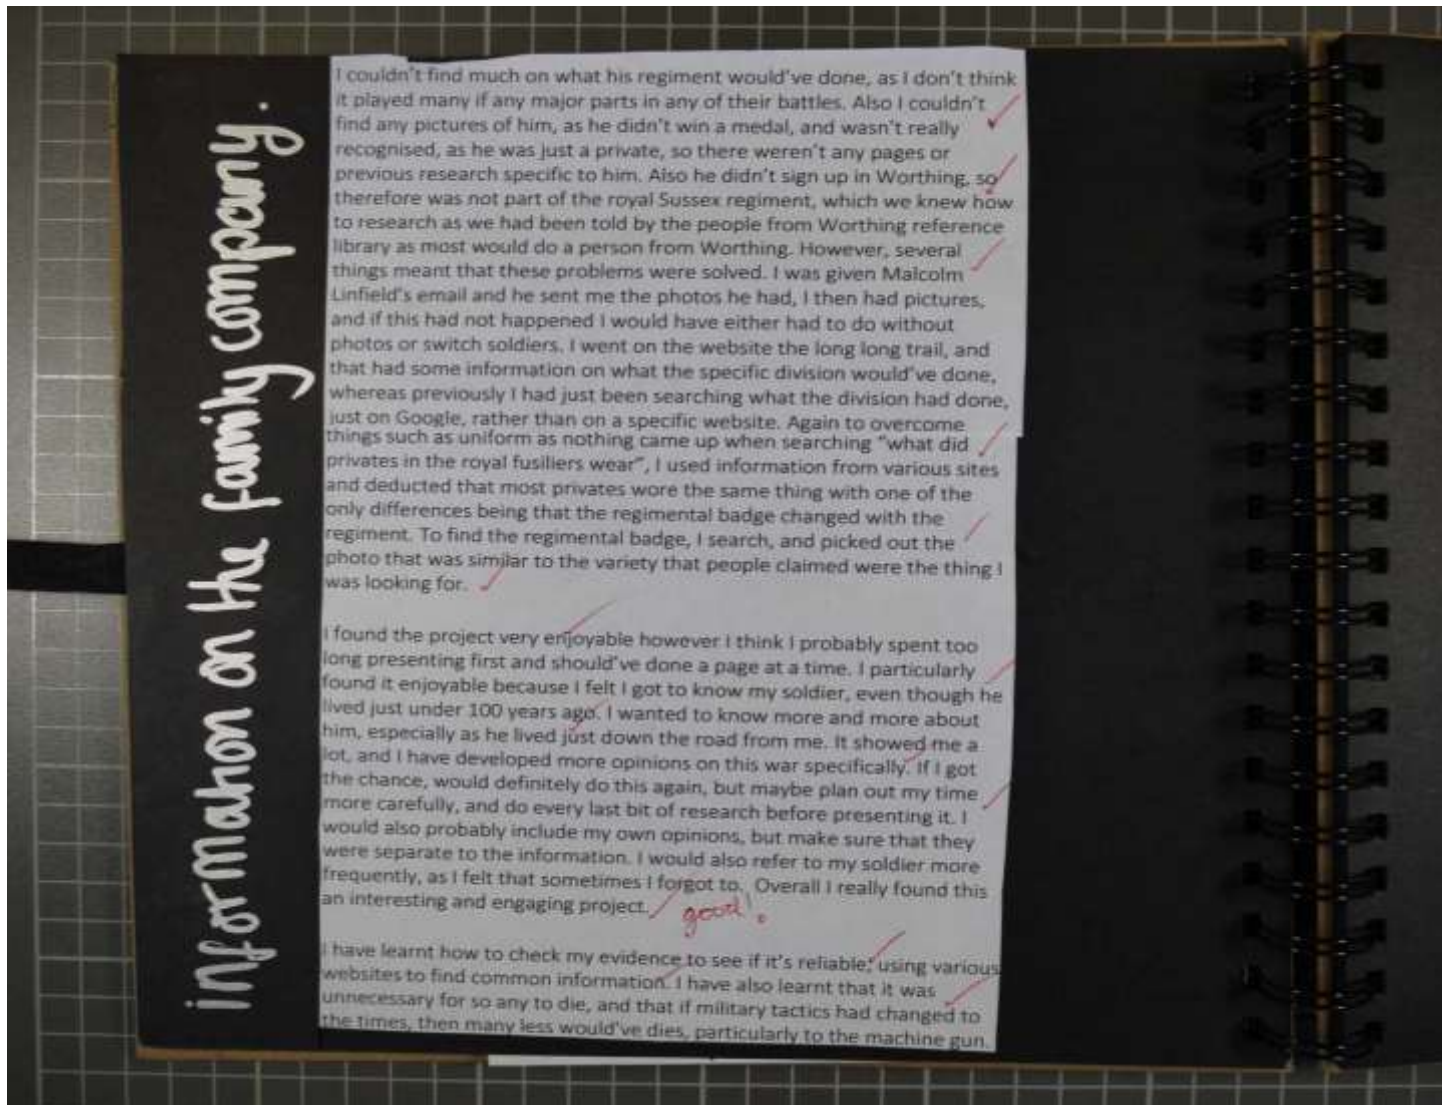 information on the family company.
I couldn't find much on what his regiment would've done, as I don't think
it played many if any major parts in any of their battles. Also I couldn't
find any pictures of him, as he didn't win a medal, and wasn't really
recognised, as he was just a private, so there weren't any pages or
previous research specific to him. Also he didn't sign up in Worthing, so
therefore was not part of the royal Sussex regiment, which we knew how
to research as we had been told by the people from Worthing reference
library as most would do a person from Worthing. However, several
things meant that these problems were solved. I was given Malcolm
Linfield's email and he sent me the photos he had, I then had pictures,
and if this had not happened I would have either had to do without
photos or switch soldiers. I went on the website the long long trail, and
that had some information on what the specific division would've done,
whereas previously I had just been searching what the division had done,
just on Google, rather than on a specific website. Again to overcome
things such as uniform as nothing came up when searching "what did
privates in the royal fusiliers wear", I used information from various sites
and deducted that most privates wore the same thing with one of the
only differences being that the regimental badge changed with the
regiment. To find the regimental badge, I search, and picked out the
photo that was similar to the variety that people claimed were the thing I
was looking for.
I found the project very enjoyable however I think I probably spent too
long presenting first and should've done a page at a time. I particularly
found it enjoyable because I felt I got to know my soldier, even though he
lived just under 100 years ago. I wanted to know more and more about
him, especially as he lived just down the road from me. It showed me a
lot, and I have developed more opinions on this war specifically. If I got
the chance, would definitely do this again, but maybe plan out my time
more carefully, and do every last bit of research before presenting it. I
would also probably include my own opinions, but make sure that they
were separate to the information. I would also refer to my soldier more
frequently, as I felt that sometimes I forgot to. Overall I really found this
an interesting and engaging project.
good!
I have learnt how to check my evidence to see if it's reliable, using various
websites to find common information. I have also learnt that it was
unnecessary for so any to die, and that if military tactics had changed to
the times, then many less would've dies, particularly to the machine gun.